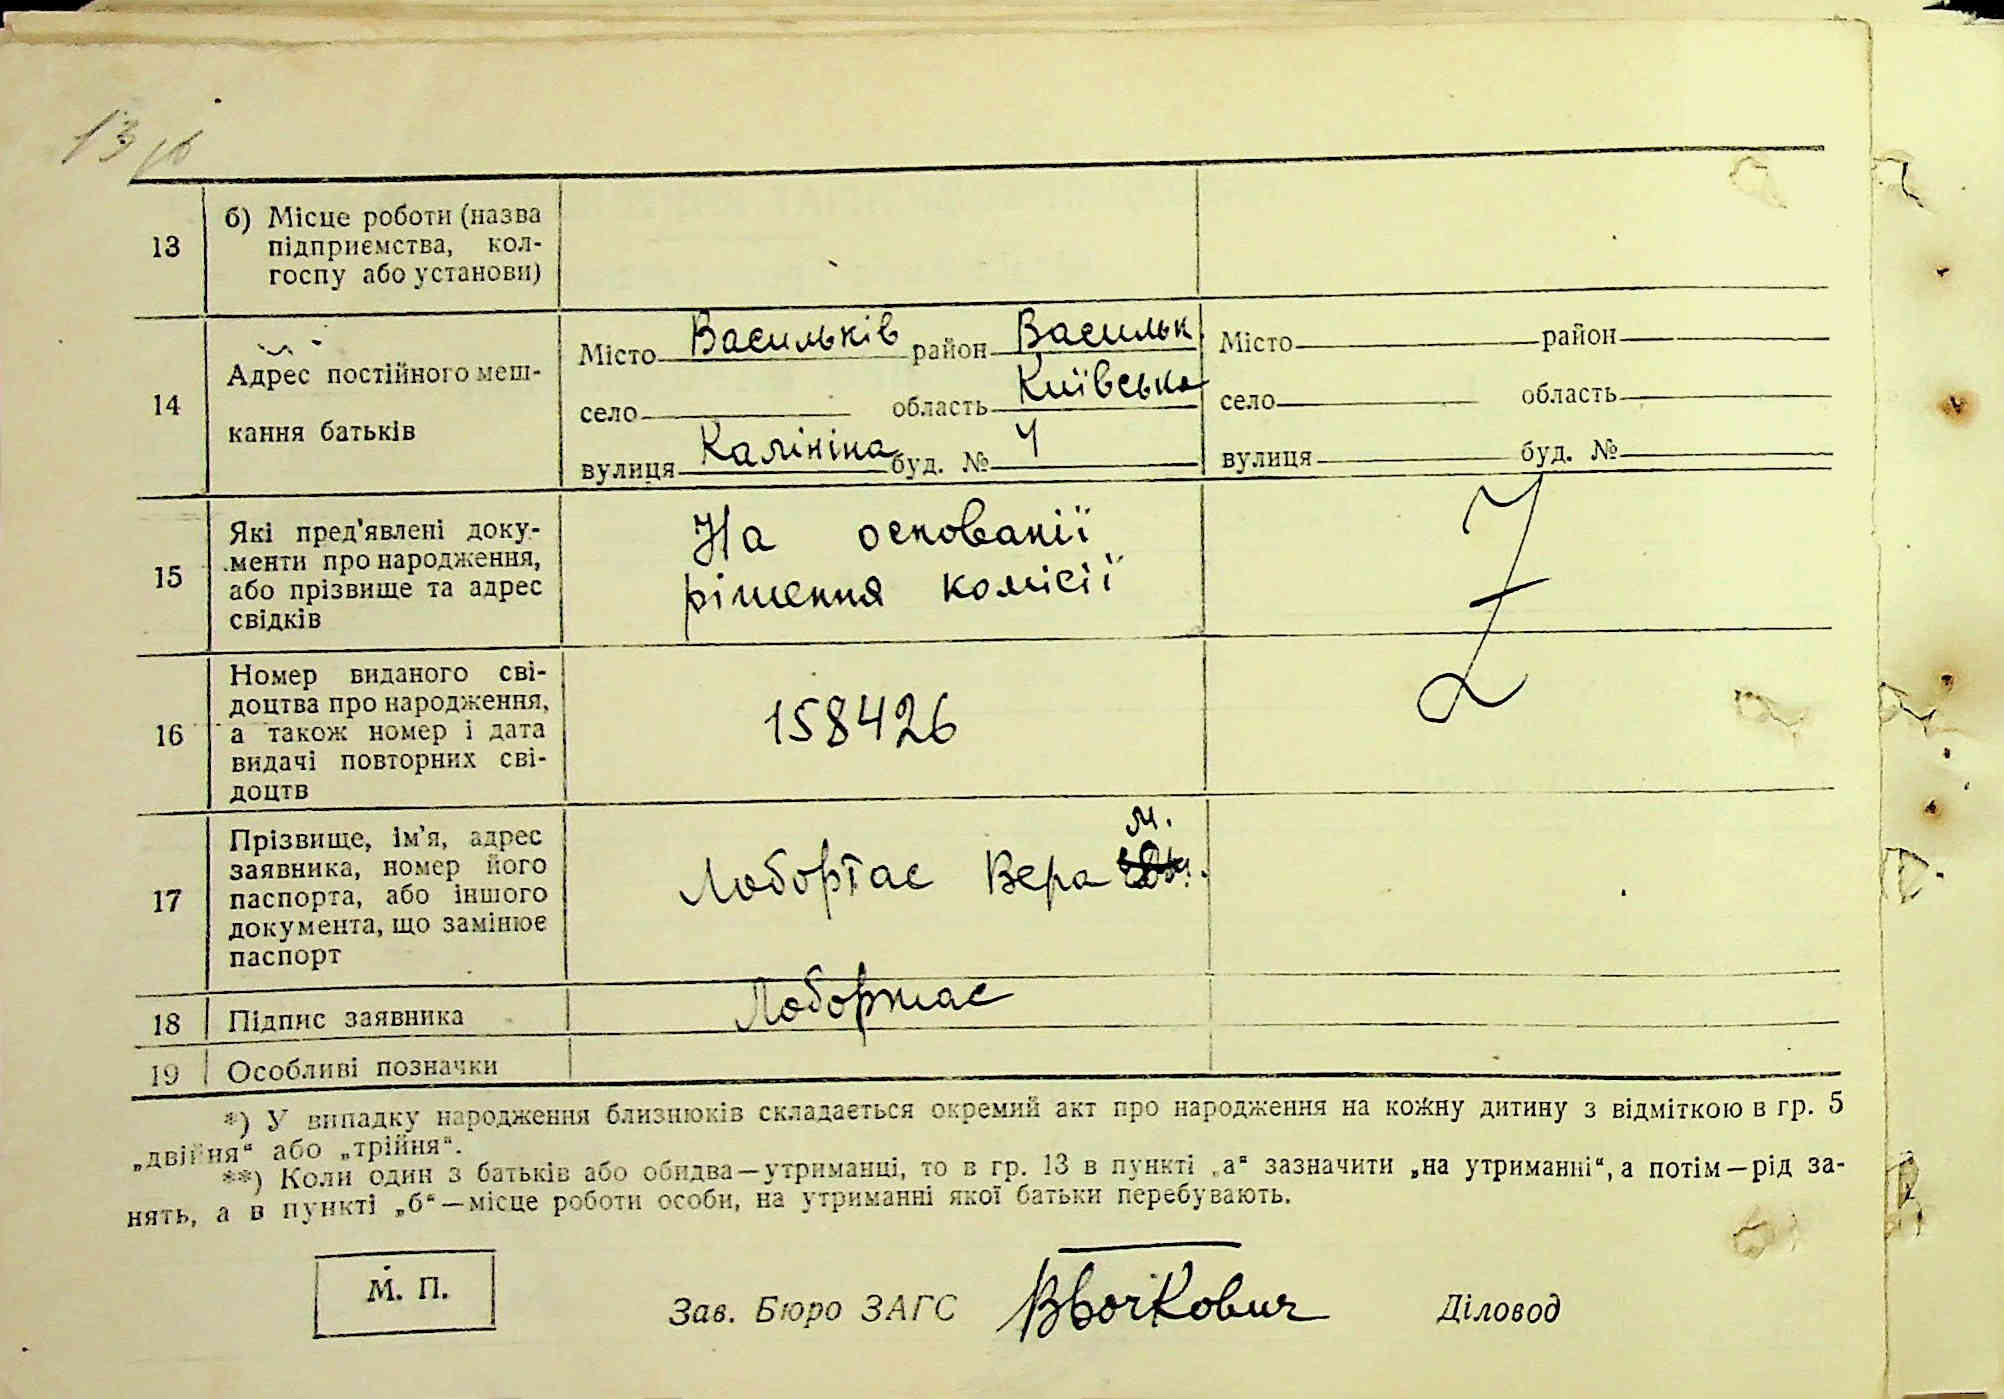 13 зв
13 б) Місце роботи (назва
підприємства, кол-
госпу або установи)
14 Адрес постійного меш-
кання батьків
Місто Васильків район Васильк
село область Київська
вулиця Калініна буд. № 4
Місто район
село область
вулиця буд. №
15 Які пред'явлені доку-
менти про народження,
або прізвище та адрес
свідків
На основанії
рішення комісії
16 Номер виданого сві-
доцтва про народження,
а також номер і дата
видачі повторних сві-
доцтв
158426
17 Прізвище, ім'я, адрес
заявника, номер його
паспорта, або іншого
документа, що замінює
паспорт
М.
Лобортас Вера
18 Підпис заявника Лобортас
19 Особливі позначки
*) У випадку народження близнюків складається окремий акт про народження на кожну дитину з відміткою в гр. 5
„двійня“ або „трійня“.
**) Коли один з батьків або обидва—утриманці, то в гр. 13 в пункті „а“ зазначити „на утриманні“, а потім—рід за-
нять, а в пункті „б“—місце роботи особи, на утриманні якої батьки перебувають.
М. П.
Зав. Бюро ЗАГС Діловод